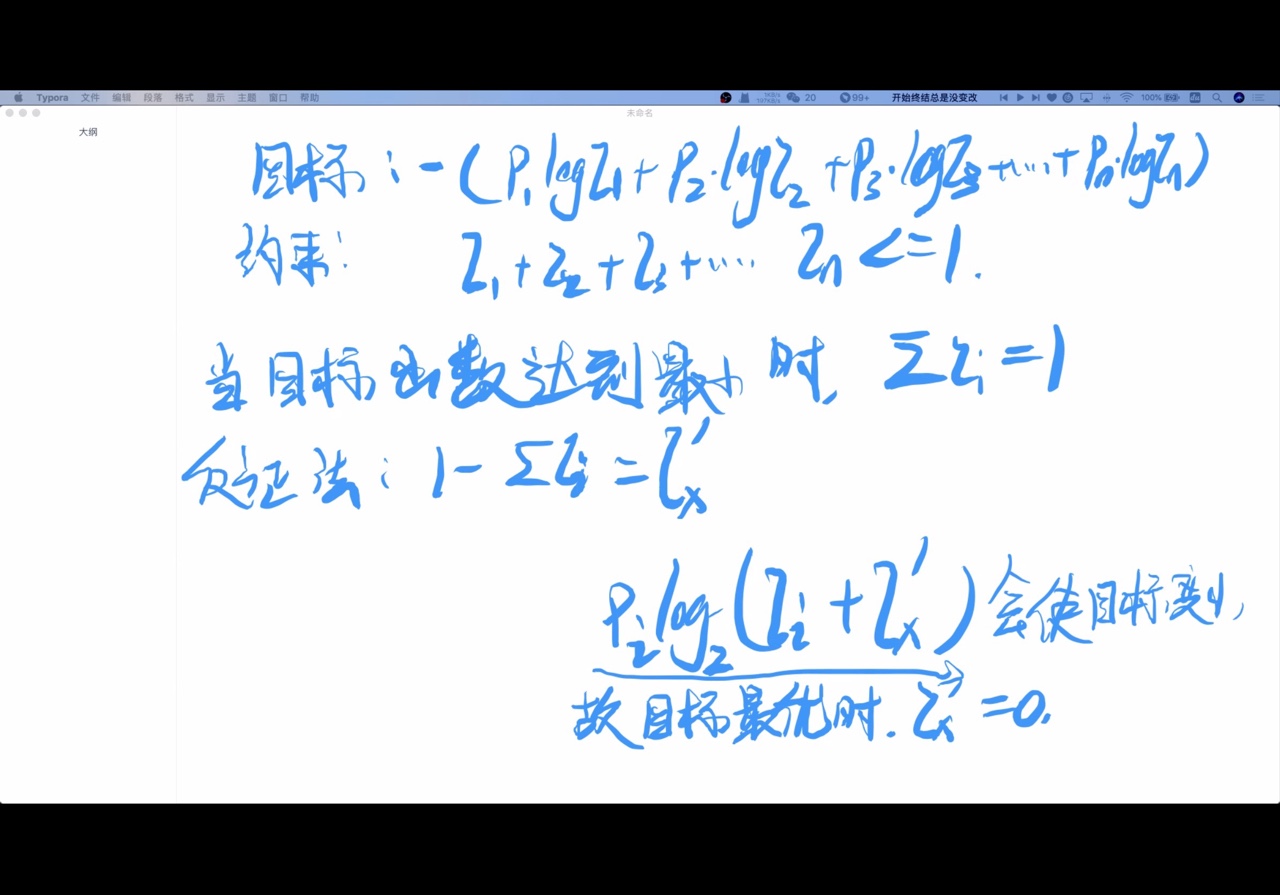 Typora 文件 编辑 段落 格式 显示 主题 窗口 帮助 20 99+ 开始终结总是没变改 100%
未命名
大纲
目标：-(P₁logZ₁+P₂·logZ₂+P₃·logZ₃+……+Pₙ·logZₙ)
约束： Z₁+Z₂+Z₃+…… Zₙ<=1.
当目标函数达到最小时, ΣZᵢ=1
反证法：1-ΣZᵢ=Zₓ'
Pᵢlog₂(Zᵢ+Zₓ')会使目标变小,
故目标最优时. Zₓ'=0.